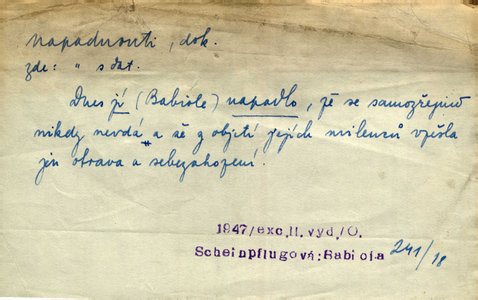 napadnouti, dok.
zde: " s dat.
Dnes jí (Babiole) napadlo, že se samozřejmě
nikdy nevdá a že z objetí jejích milenců vzešla
jen otrava a sebezahození.
1947/exc.II.vyd./O.
Scheinpflugová:Babiola 241/18